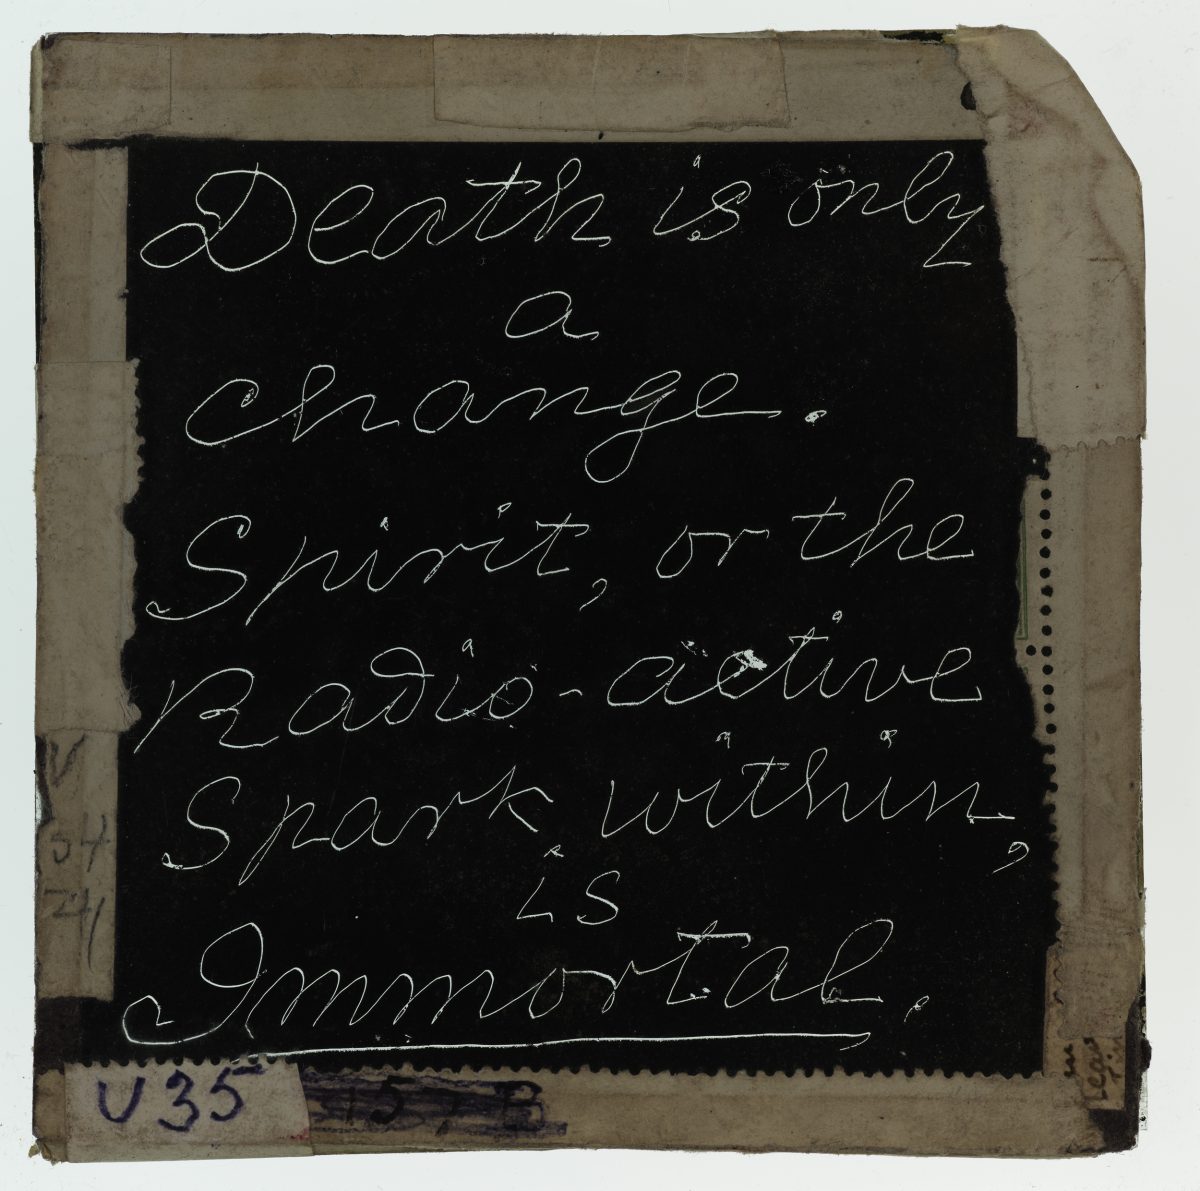 Death is only
a
change.
Spirit, or the
Radio-active
Spark within,
is
Immortal.
U 35